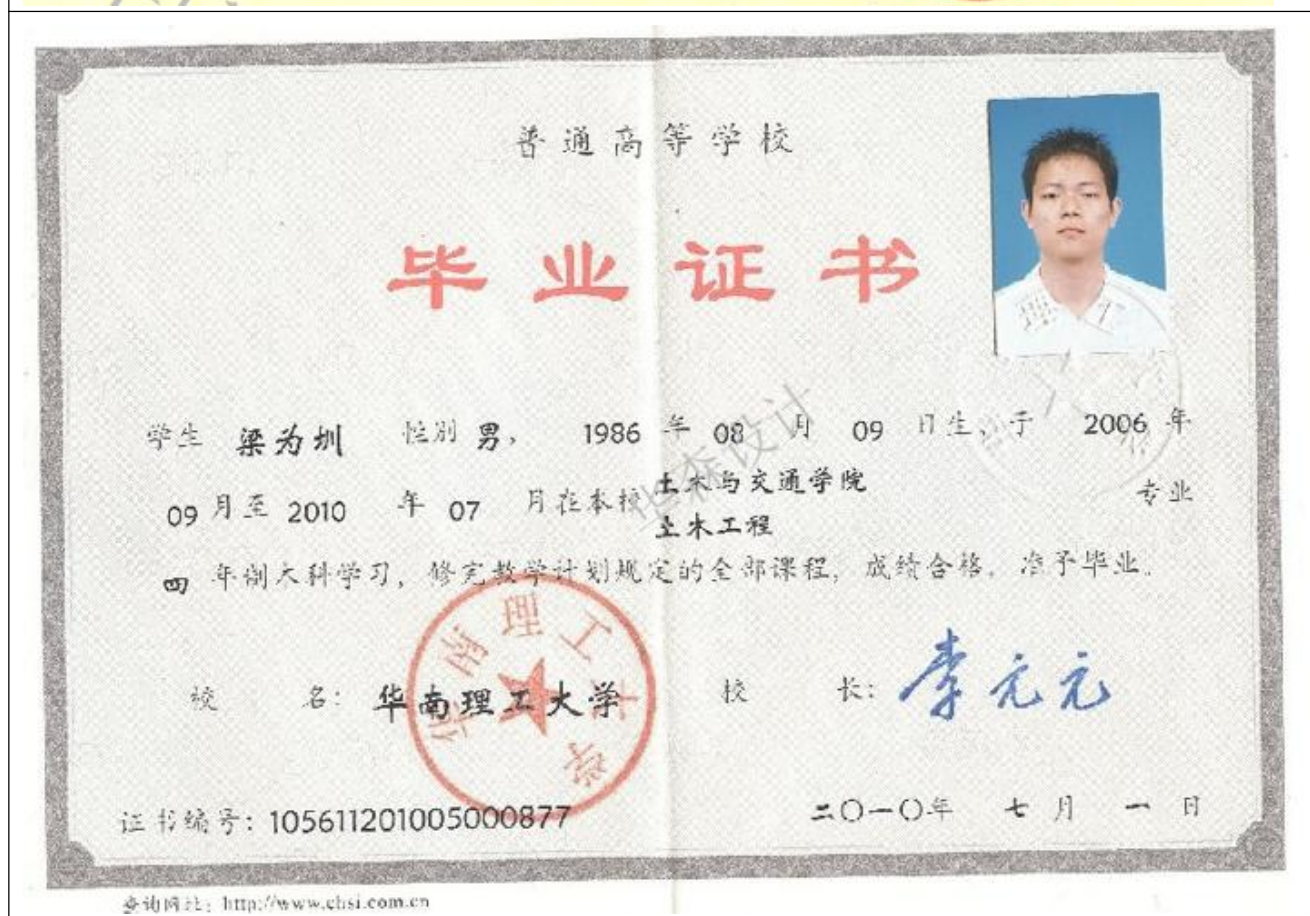 普通高等学校
毕业证书
学生 梁为圳 性别 男， 1986 年 08 月 09 日生，于 2006 年
09 月至 2010 年 07 月在本校 土木与交通学院
土木工程 专业
四 年制本科学习，修完教学计划规定的全部课程，成绩合格，准予毕业。
华南理工大学
校 名：华南理工大学 校 长：李元元
证书编号：105611201005000877 二〇一〇年 七 月 一 日
查询网址：http://www.chsi.com.cn
华森设计